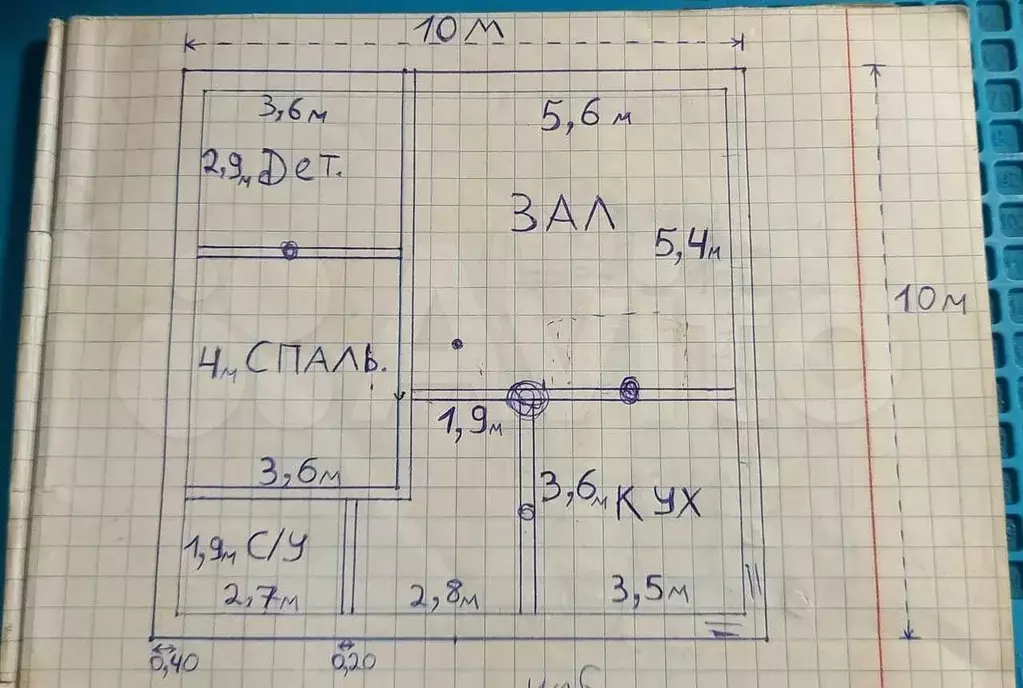 10 м
3,6 м
5,6 м
2,9м Дет.
ЗАЛ
5,4м
10 м
4м СПАЛЬ.
1,9м
3,6м
3,6м КУХ
1,9м С/У
2,7м
2,8м
3,5м
0,40
0,20
Avito